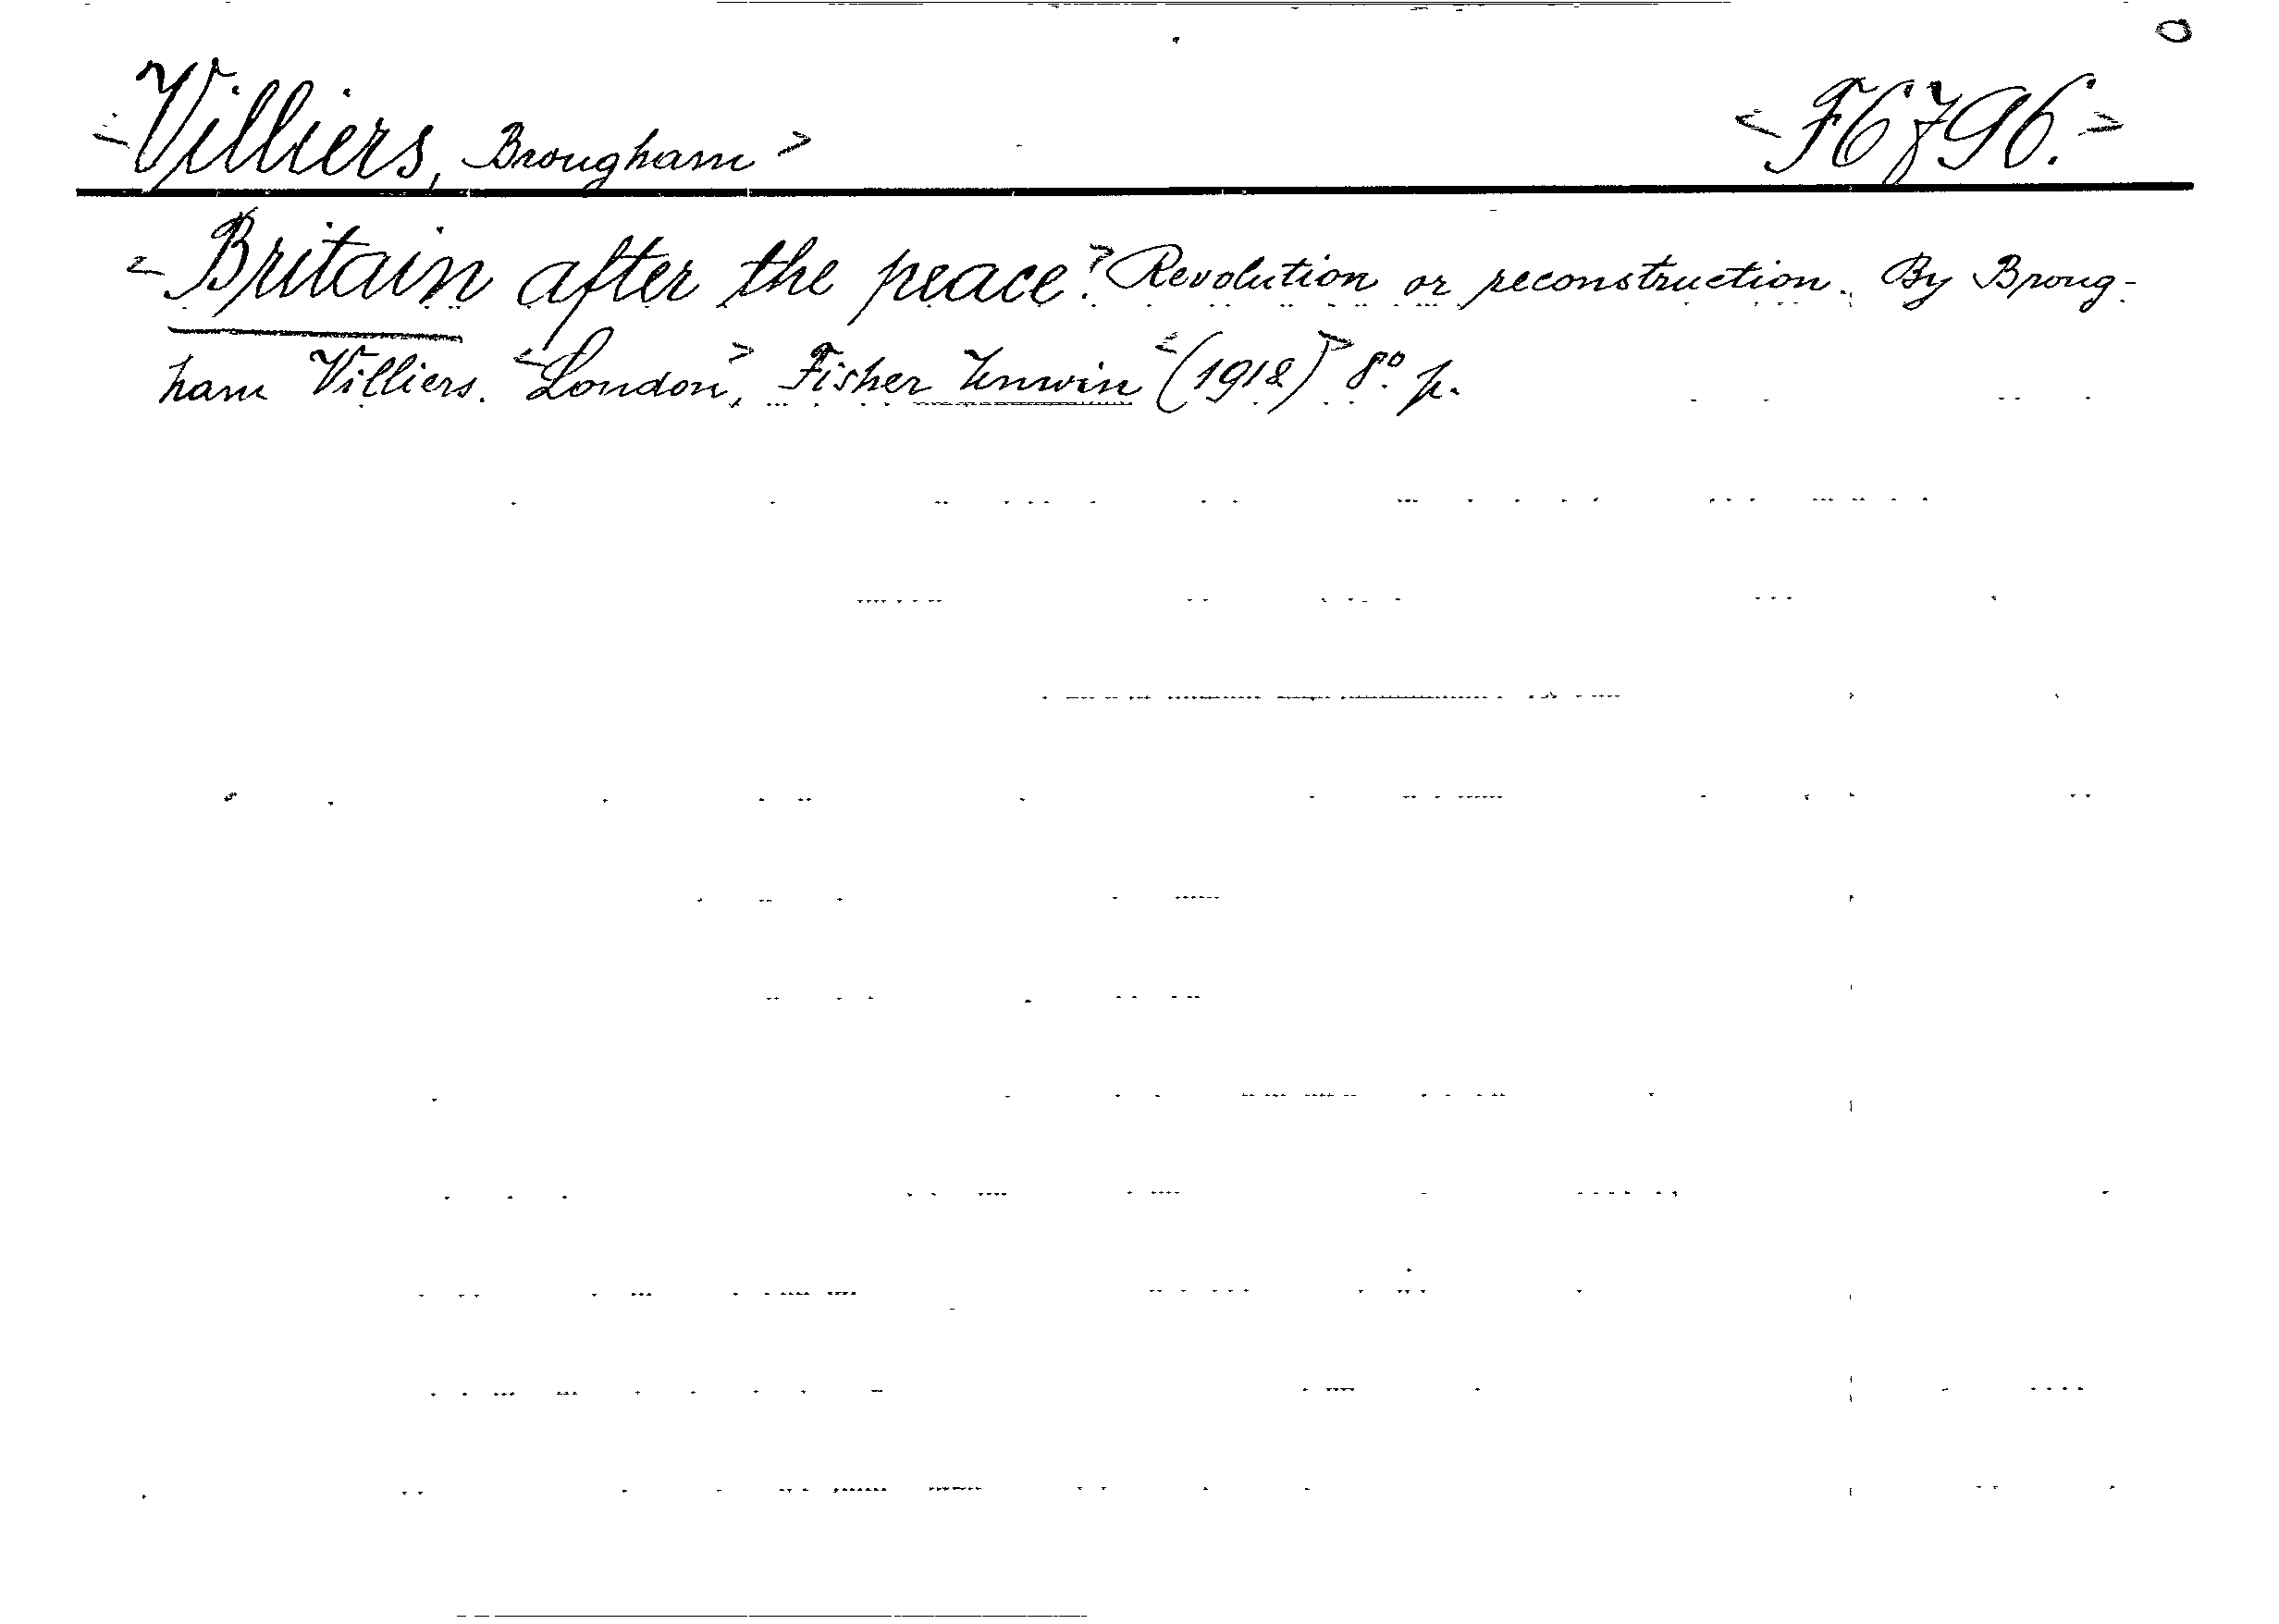 <Villiers, Brougham> <F6796.>
<Britain after the peace.> Revolution or reconstruction. By Broug-
ham Villiers. <London>, Fisher Unwin <(1918)> 8º. p.